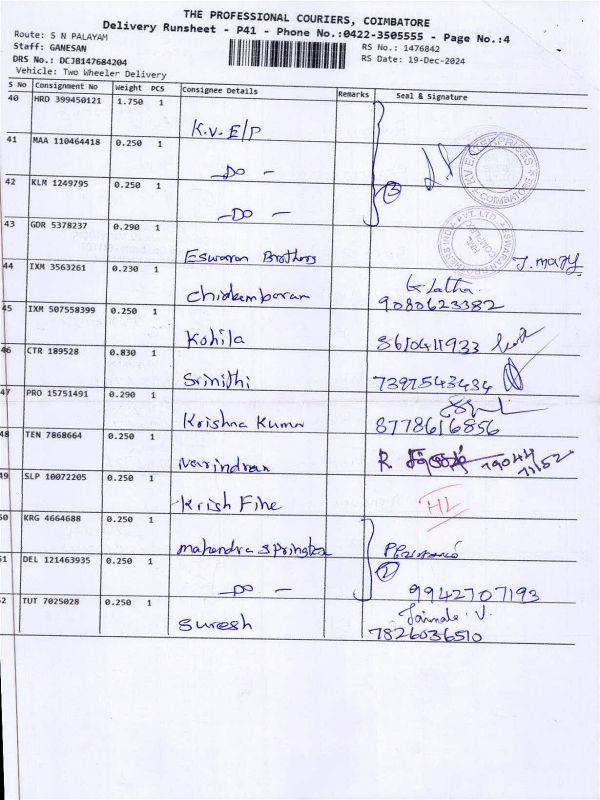 THE PROFESSIONAL COURIERS, COIMBATORE
Delivery Runsheet - P41 - Phone No.:0422-3505555 - Page No.:4
Route: S N PALAYAM
RS No.: 1476842
Staff: GANESAN
RS Date: 19-Dec-2024
DRS No.: DCJB147684204
Vehicle: Two Wheeler Delivery
S No Consignment No Weight PCS Consignee Details Remarks Seal & Signature
40 HRD 399450121 1.750 1
K.V. E/P
41 MAA 110464418 0.250 1
-Do -
42 KLM 1249795 0.250 1
-Do -
3
43 GDR 5378237 0.290 1
Eswaran Brothers
J. mary
44 IXM 3563261 0.230 1
Chidambaram
G. Latha
9080623382
45 IXM 507558399 0.250 1
Kohila 8610411933
46 CTR 189528 0.830 1
Srinithi 7397543434
47 PRO 15751491 0.290 1
Krishna Kumar 8778616856
48 TEN 7868664 0.250 1
Narindran R
49 SLP 10072205 0.250 1
Krish Fine HL
50 KRG 4664688 0.250 1
mahendra springtex
51 DEL 121463935 0.250 1
-Do - 9942707193
52 TUT 7025028 0.250 1
Suresh
7826036510